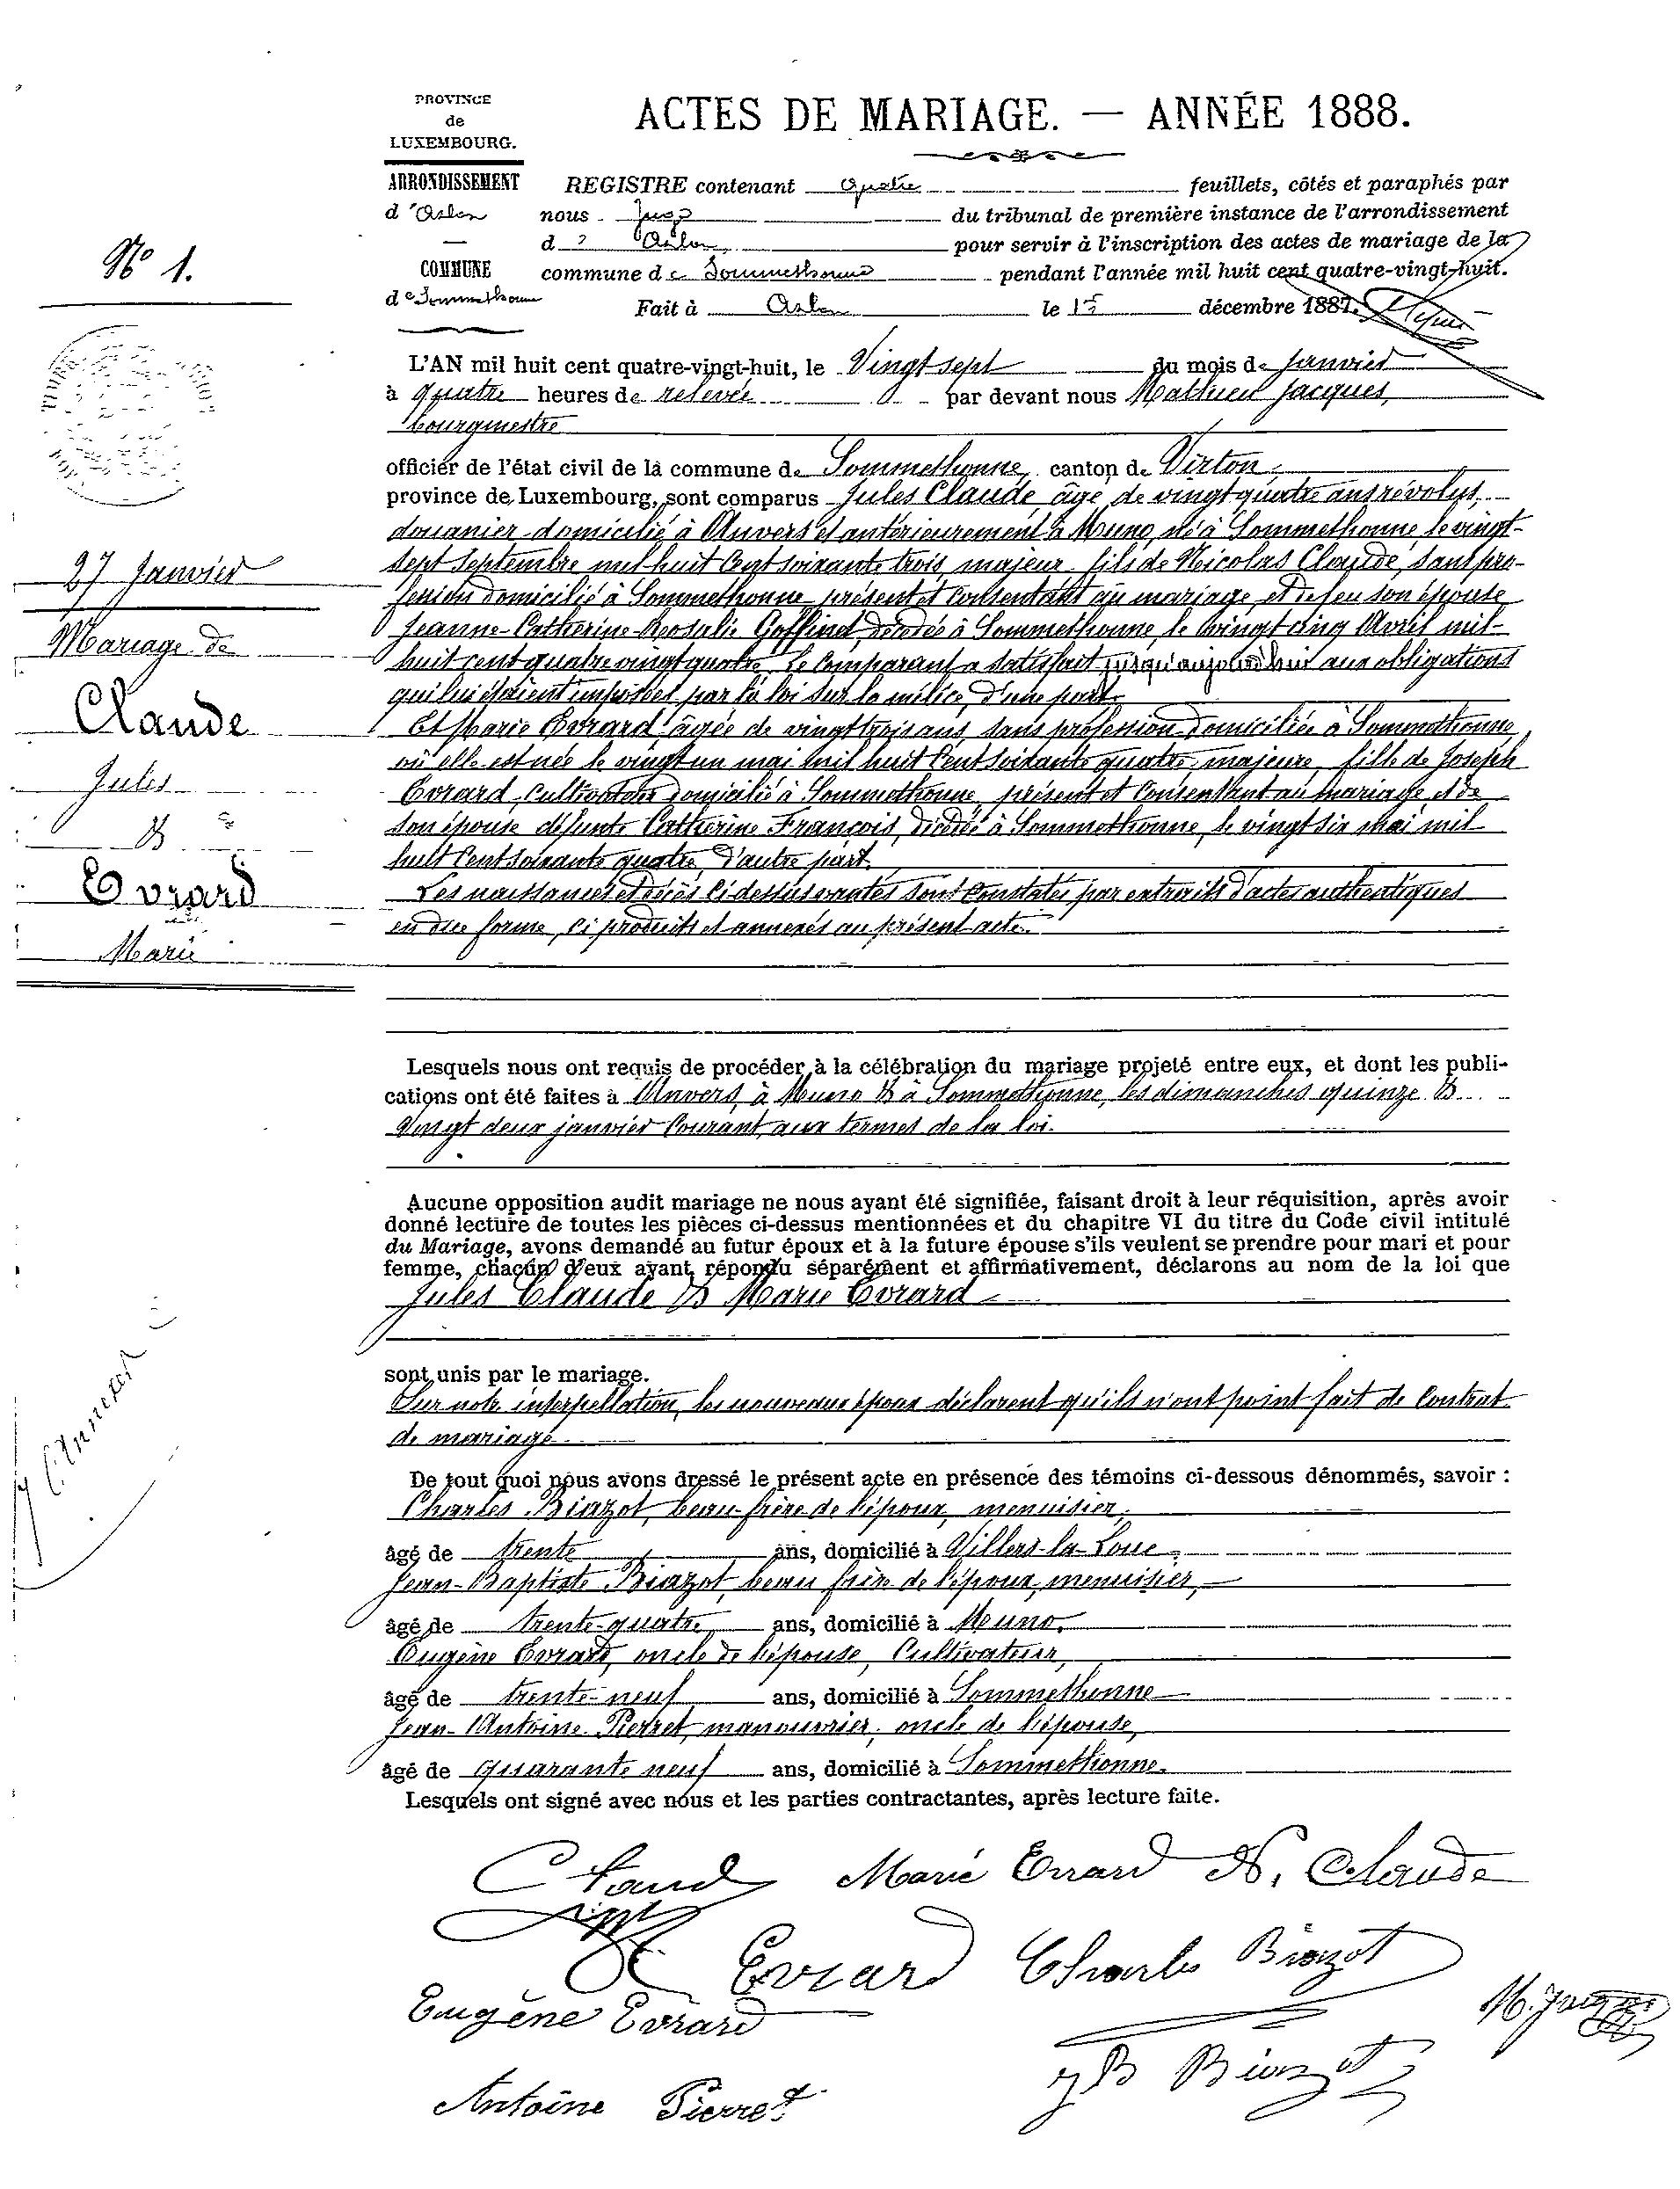 PROVINCE
de
LUXEMBOURG.
ACTES DE MARIAGE. — ANNÉE 1888.
ARRONDISSEMENT
d'Arlon
COMMUNE
de Sommethonne
REGISTRE contenant quatre feuillets, côtés et paraphés par
nous Juge du tribunal de première instance de l'arrondissement
d' Arlon, pour servir à l'inscription des actes de mariage de la
commune de Sommethonne pendant l'année mil huit cent quatre-vingt-huit.
Fait à Arlon le 15 décembre 1887.
No 1.
27 Janvier
Mariage de
Claude
Jules
&
Evrard
Marie
L'AN mil huit cent quatre-vingt-huit, le Vingt sept du mois de janvier
à quatre heures de relevée par devant nous Mathieu Jacques,
bourgmestre
officier de l'état civil de la commune de Sommethonne, canton de Virton,
province de Luxembourg, sont comparus Jules Claude, âgé de vingt quatre ans révolus,
douanier domicilié à Anvers et antérieurement à Muno, né à Sommethonne le vingt-
sept Septembre mil huit Cent soixante trois, majeur, fils de Nicolas Claude, sans pro-
fession domicilié à Sommethonne, présent et Consentant au mariage, et de feu son épouse
Jeanne-Catherine-Rosalie Goffinet, décédée à Sommethonne, le vingt cinq Avril mil-
huit cent quatre vingt quatre. Le Comparant a satisfait jusqu'aujourd'hui aux obligations
qui lui étaient imposées par la loi sur la milice, d'une part.
Et Marie Evrard âgée de vingt trois ans, sans profession domiciliée à Sommethonne,
où elle est née le vingt un mai mil huit Cent soixante quatre, majeure, fille de Joseph
Evrard, Cultivateur domicilié à Sommethonne, présent et Consentant au mariage, et de
son épouse défunte Catherine François, décédée à Sommethonne, le vingt six mai mil
huit Cent soixante quatre, d'autre part.
Les naissances et décès Ci-dessus vantés sont Constatés par extraits d'actes authentiques
en due forme, Ci produits et annexés au présent acte.
Lesquels nous ont requis de procéder à la célébration du mariage projeté entre eux, et dont les publi-
cations ont été faites à Anvers, à Muno & à Sommethonne, les dimanches quinze &
Vingt deux janvier Courant, aux termes de la loi.
Aucune opposition audit mariage ne nous ayant été signifiée, faisant droit à leur réquisition, après avoir
donné lecture de toutes les pièces ci-dessus mentionnées et du chapitre VI du titre du Code civil intitulé
du Mariage, avons demandé au futur époux et à la future épouse s'ils veulent se prendre pour mari et pour
femme, chacun d'eux ayant répondu séparément et affirmativement, déclarons au nom de la loi que
Jules Claude & Marie Evrard
sont unis par le mariage.
Sur notre interpellation, les nouveaux époux déclarent qu'ils n'ont point fait de Contrat
de mariage
De tout quoi nous avons dressé le présent acte en présence des témoins ci-dessous dénommés, savoir :
Charles Biazot, beau-frère de l'époux, menuisier,
âgé de trente ans, domicilié à Villers-la-Loue,
Jean-Baptiste Biazot, beau frère de l'époux, menuisier,
âgé de trente-quatre ans, domicilié à Muno,
Eugène Evrard, oncle de l'épouse, Cultivateur,
âgé de trente-neuf ans, domicilié à Sommethonne
Jean-Antoine Pierret, manouvrier, oncle de l'épouse,
âgé de quarante neuf ans, domicilié à Sommethonne.
Lesquels ont signé avec nous et les parties contractantes, après lecture faite.
Annexes
Claude Marie Evrard N. Claude
Evrard Charles Biazot
Eugène Evrard M. Jacques
Antoine Pierret JB Biazot